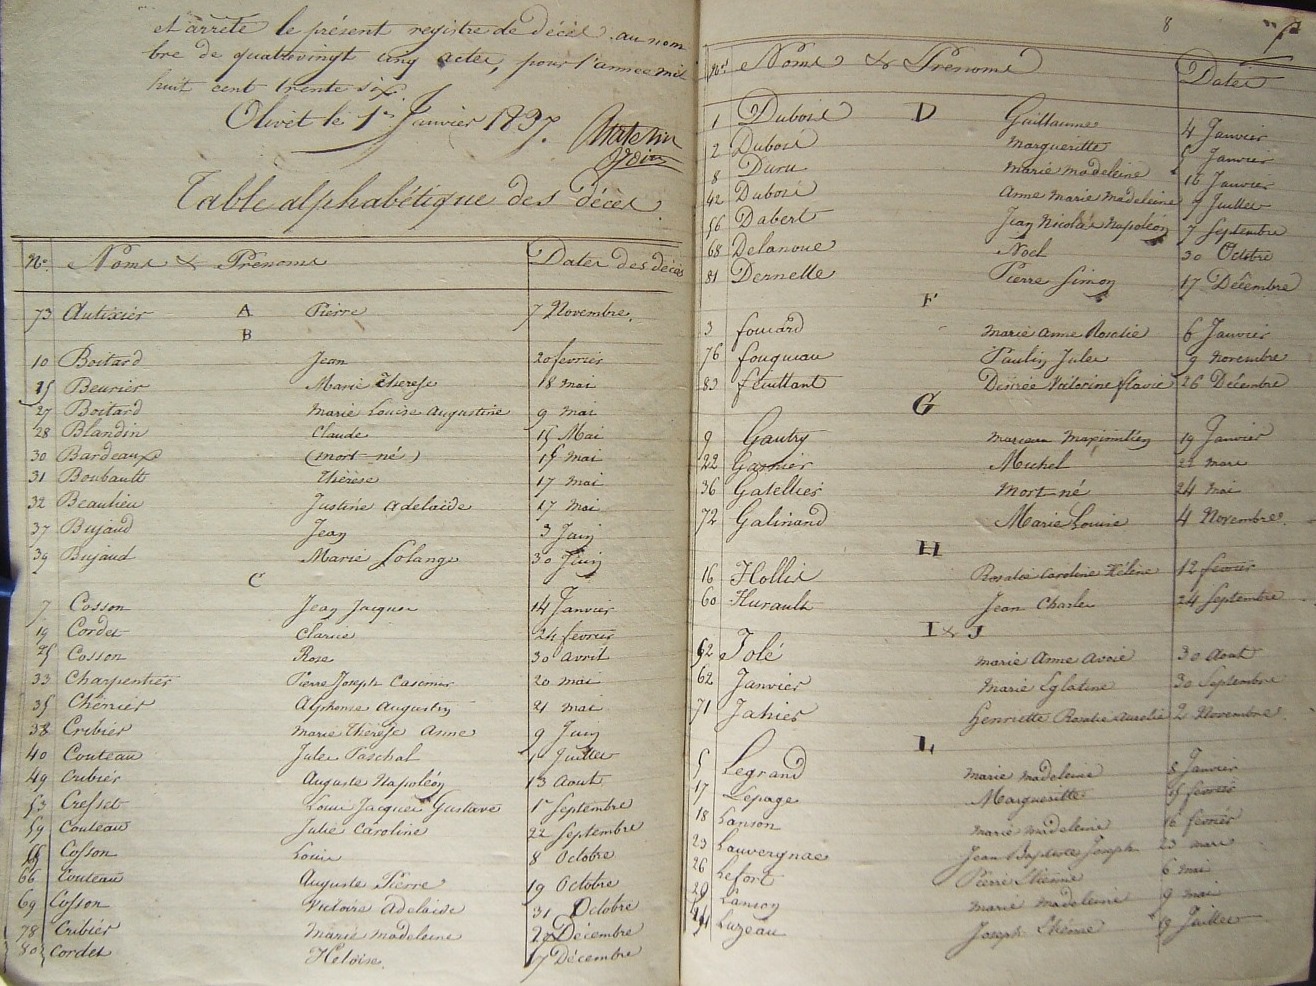 et arrêté le présent registre de décès au nom
bre de quatrevingt cinq actes, pour l'année mil
huit cent trente six.
Olivet le 1er Janvier 1837.
Table alphabétique des décès.
Nos Noms & Prénoms Dates des décès
73 Autixier A Pierre 7 Novembre.
B
10 Boitard Jean 20 fevrier
15 Beurier Marie Thérèse 18 mai
27 Boitard Marie Louise Augustine 9 mai
28 Blandin Claude 15 Mai
30 Bardeaux (mort-né) 15 mai
31 Boubault Thérèse 17 mai
32 Beaulieu Justine Adelaïde 17 mai
37 Bujaud Jean 3 Juin
39 Bujaud Marie Solange 30 Juin
C
7 Cosson Jean Jacques 14 Janvier
19 Cordet Clarisse 24 fevrier
25 Cosson Rose 30 avril
33 Charpentier Pierre Joseph Casimir 20 mai
35 Chenier Alphonse Augustin 21 mai
38 Cribier Marie Thérèse Anne 9 Juin
40 Couteau Jules Paschal 1er Juillet
49 Cribier Auguste Napoléon 13 Aout
53 Cresset Louis Jacques Gustave 1er Septembre
59 Couteau Julie Caroline 22 Septembre
Cosson Louis 8 Octobre
66 Couteau Auguste Pierre 19 Octobre
69 Cosson Victoire Adelaïde 31 Octobre
78 Cribier Marie Madeleine Décembre
80 Cordet Heloïse 17 Décembre
8
Nos Noms & Prénoms Dates
1 Dubois D Guillaume 4 Janvier
2 Dubois Margueritte 5 Janvier
8 Duru Marie Madeleine 16 Janvier
42 Dubois Anne Marie Madeleine 9 Juillet
56 Dabert Jean Nicolas Napoléon 7 Septembre
68 Delanoue Noël 30 Octobre
81 Dernelle Pierre Simon 17 Décembre
F
3 fouard Marie Anne Rosalie 6 Janvier
76 fouqueau Paulin Jules 9 novembre
83 feuillant Désirée Victorine flavie 26 Décembre
G
9 Gautry Maximilien 19 Janvier
22 Garnier Michel 22 mars
36 Gatellier Mort-né 24 mai
72 Galinand Marie Louise 4 Novembre.
H
16 Hollis Rosalie Caroline Hélène 12 fevrier
60 Hurault Jean Charles 24 Septembre
I & J
52 Jolé Marie Anne Avoie 30 Aout
62 Janvier Marie Eglatine 30 Septembre
71 Jahier Henriette Rosalie Aurelie 2 Novembre.
L
5 Legrand Marie Madeleine 8 Janvier
17 Lepage Margueritte 15 fevrier
18 Lanson Marie Madeleine 16 fevrier
23 Lauvergnas Jean Baptiste Joseph 23 mars
26 Lefort Pierre Etienne 6 mai
29 Lanson Marie Madeleine 9 mai
Luzeau Joseph Etienne 19 Juillet